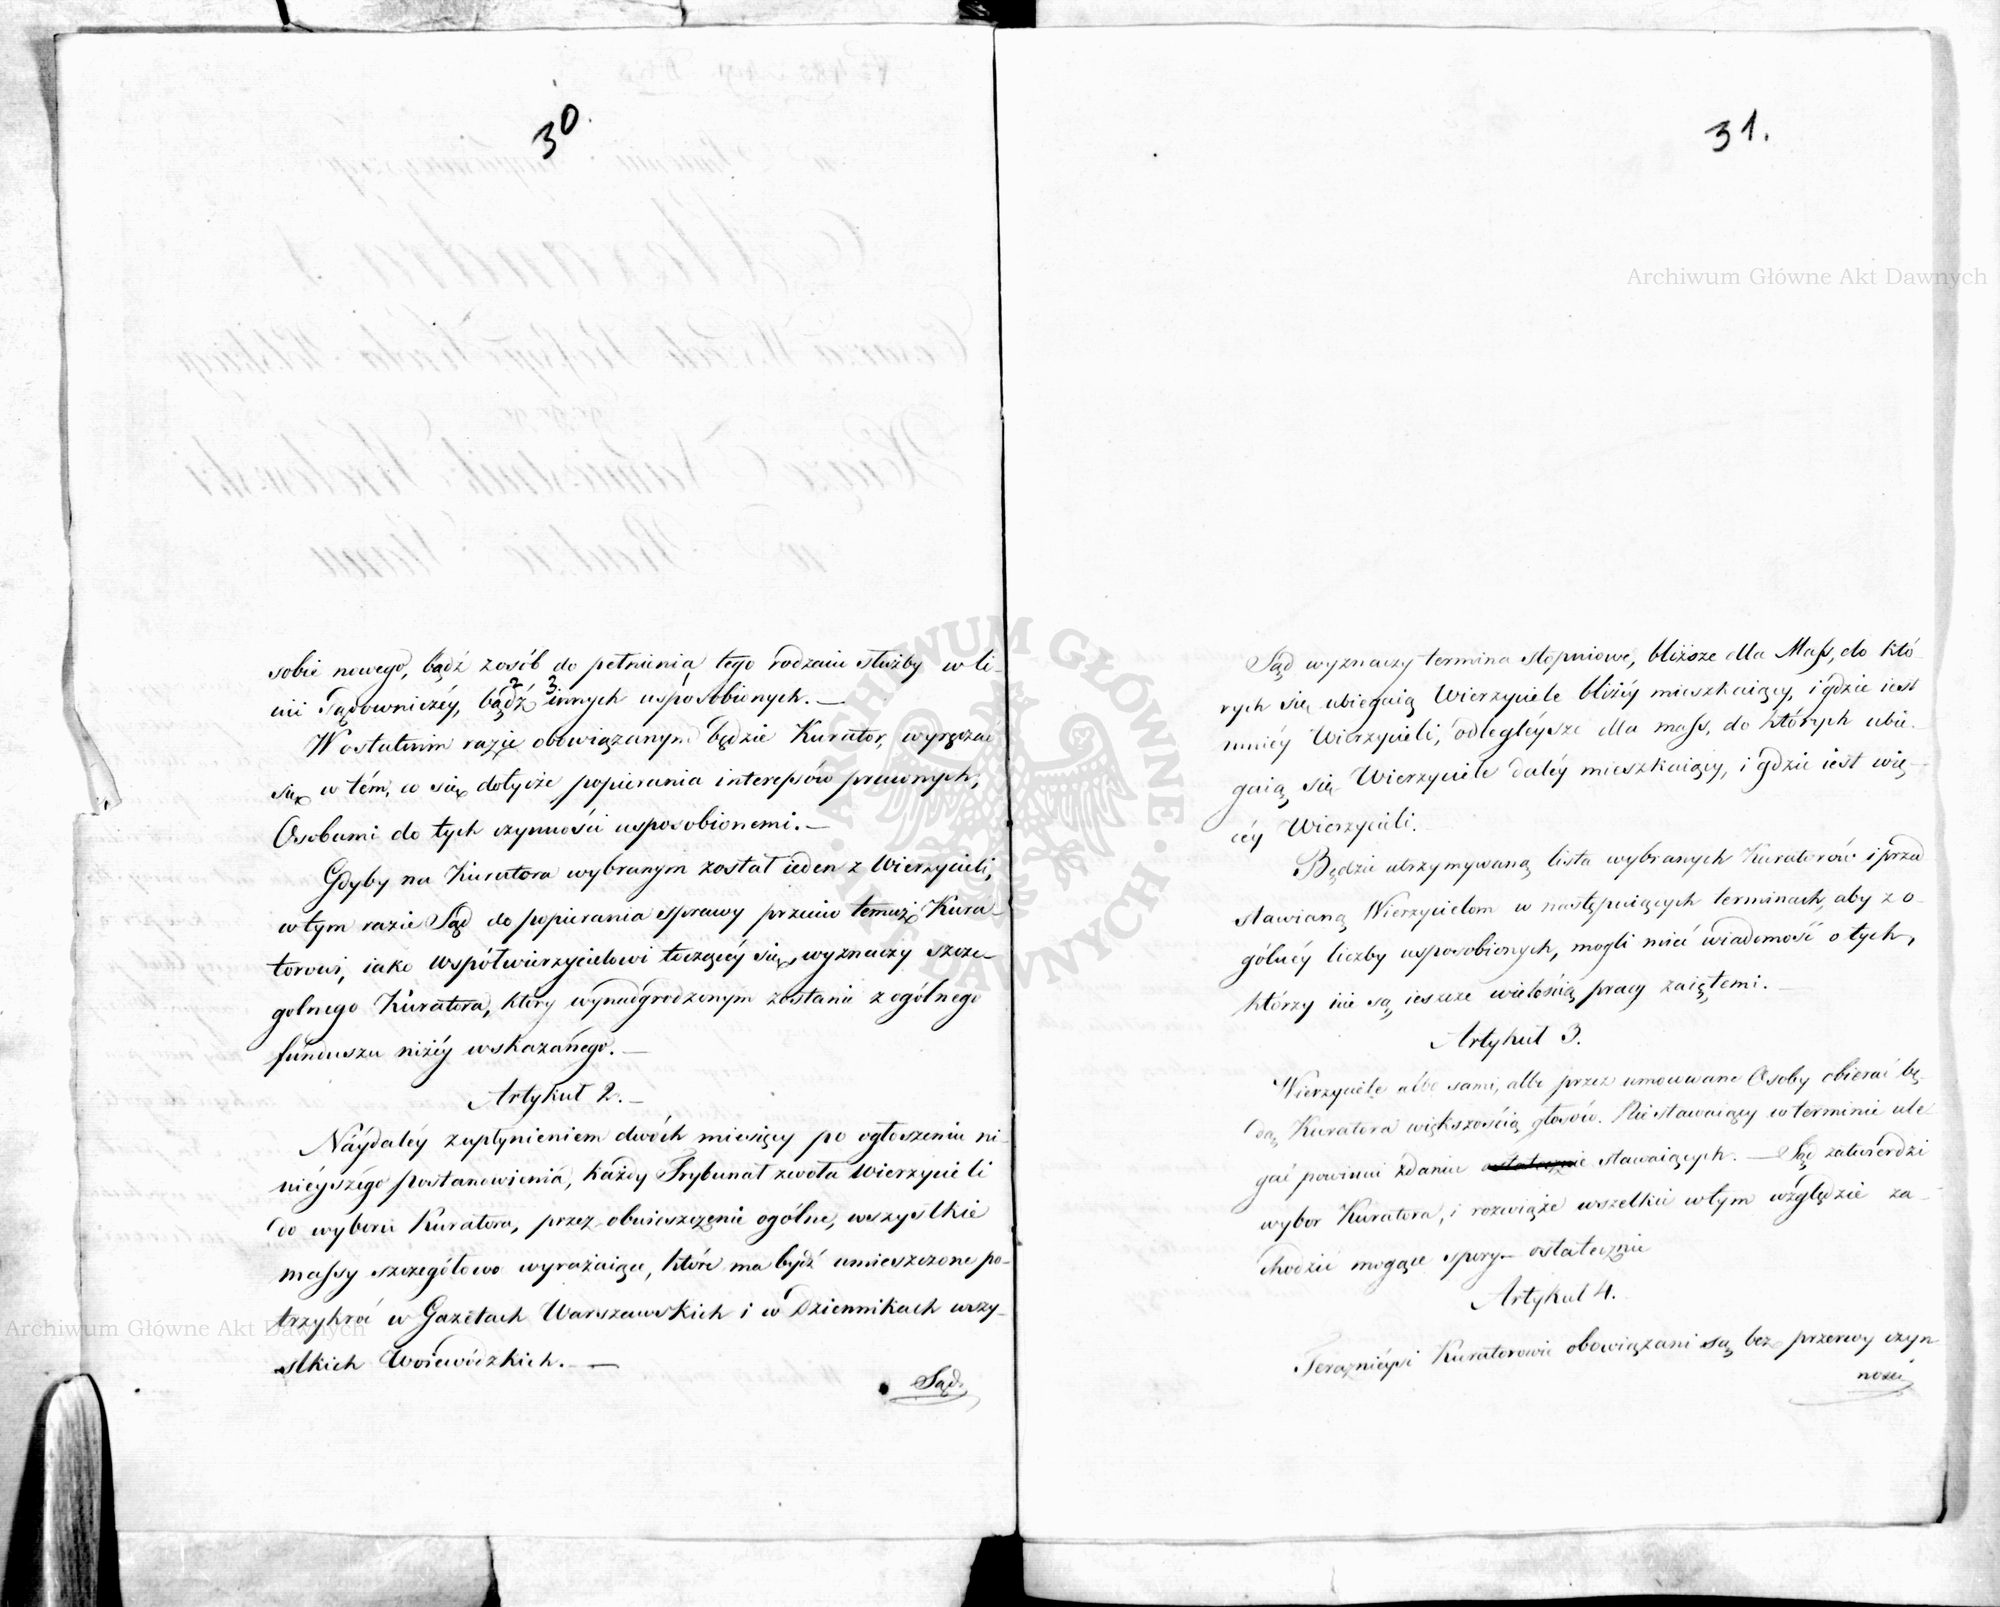 30.
sobie nowego, bądź z osób do pełnienia tego rodzaiu służby w li-
nii Sądowniczéy, bądź z innych usposobionych. —
W ostatnim razie obowiązanym będzie Kurator, wyręczać
się w tém, co się dotycze popierania interessów prawnych,
Osobami do tych czynności usposobionemi. —
Gdyby na Kuratora wybranym został ieden z Wierzycieli,
w tym razie Sąd do popierania sprawy przeciw temuż Kura-
torowi, iako współwierzycielowi toczącéy się, wyznaczy szcze-
gólnego Kuratora, który wynadgrodzonym zostanie z ogólnego
funduszu niżéy wskazanego. —
Artykuł 2. —
Náydaléy z upłynieniem dwóch miesięcy po ogłoszeniu ni-
nieyszégo postanowienia, każdy Trybunał zwoła Wierzycieli
do wyboru Kuratora, przez obwieszczenie ogólne, wszystkie
massy szczegółowo wyrażaiące, które ma bydź umieszczone po-
trzykroć w Gazetach Warszawskich i w Dziennikach wszy-
stkich Woiewódzkich. —
Sąd
31.
Sąd wyznaczy termina stopniowe, bliższe dla Mass, do któ-
rych się ubiegaią Wierzyciele bliżéy mieszkaiący, i gdzie iest
mniéy Wierzycieli, odległéysze dla mass, do których ubie-
gaią się Wierzyciele daléy mieszkaiący, i gdzie iest wię-
céy Wierzycieli.
Będzie utrzymywaną lista wybranych Kuratorów i przed
stawianą Wierzycielom w następuiących terminach, aby z o-
gólnéy liczby usposobionych, mogli mieć wiadomość o tych,
którzy nie są ieszcze wielością pracy zaiętemi. —
Artykuł 3.
Wierzyciele albo sami, albo przez umocowane Osoby obierać bę-
dą Kuratora większością głosów. Niestawaiący w terminie ule
gać powinni zdaniu ostatecznie stawaiących. — Sąd zatwierdzi
wybor Kuratora, i rozwiąże wszelkie w tym względzie za-
chodzić mogące spory — ostatecznie
Artykuł 4.
Teraznieysi Kuratorowie obowiązani są bez przerwy czyn
ności
Archiwum Główne Akt Dawnych
Archiwum Główne Akt Dawnych
ARCHIWUM GŁÓWNE · AKT DAWNYCH ·